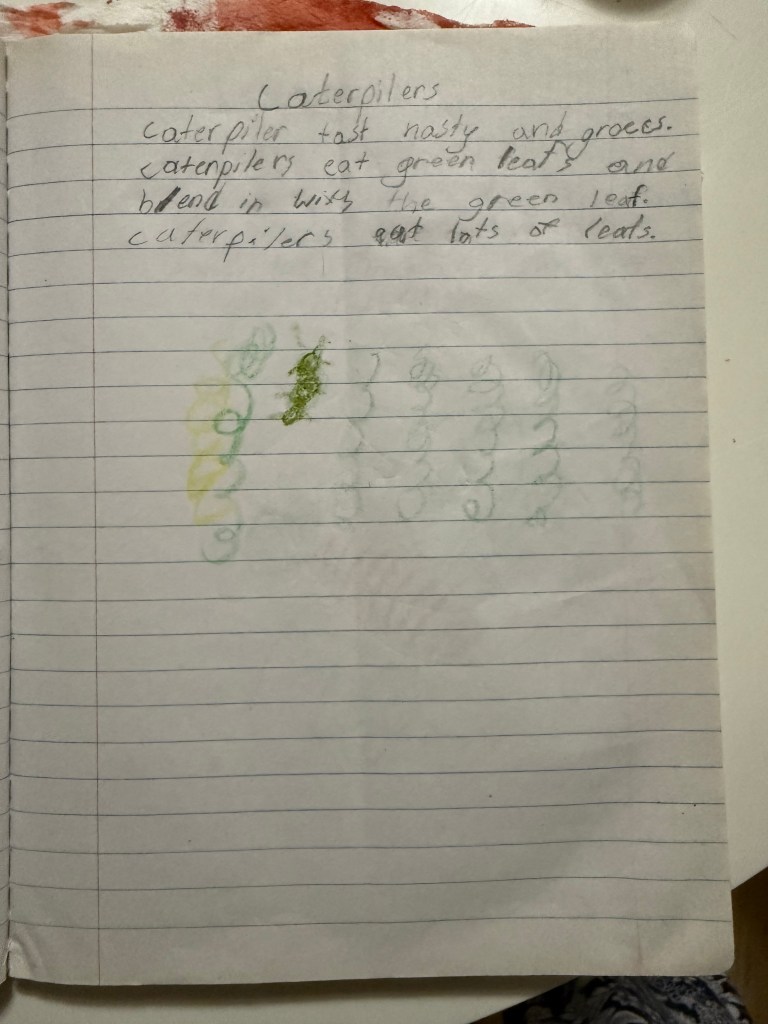 Caterpilers
Caterpiler tast nasty and grocc.
Caterpilers eat green leafs and
blend in with the green leaf.
Caterpilers eat lots of leafs.